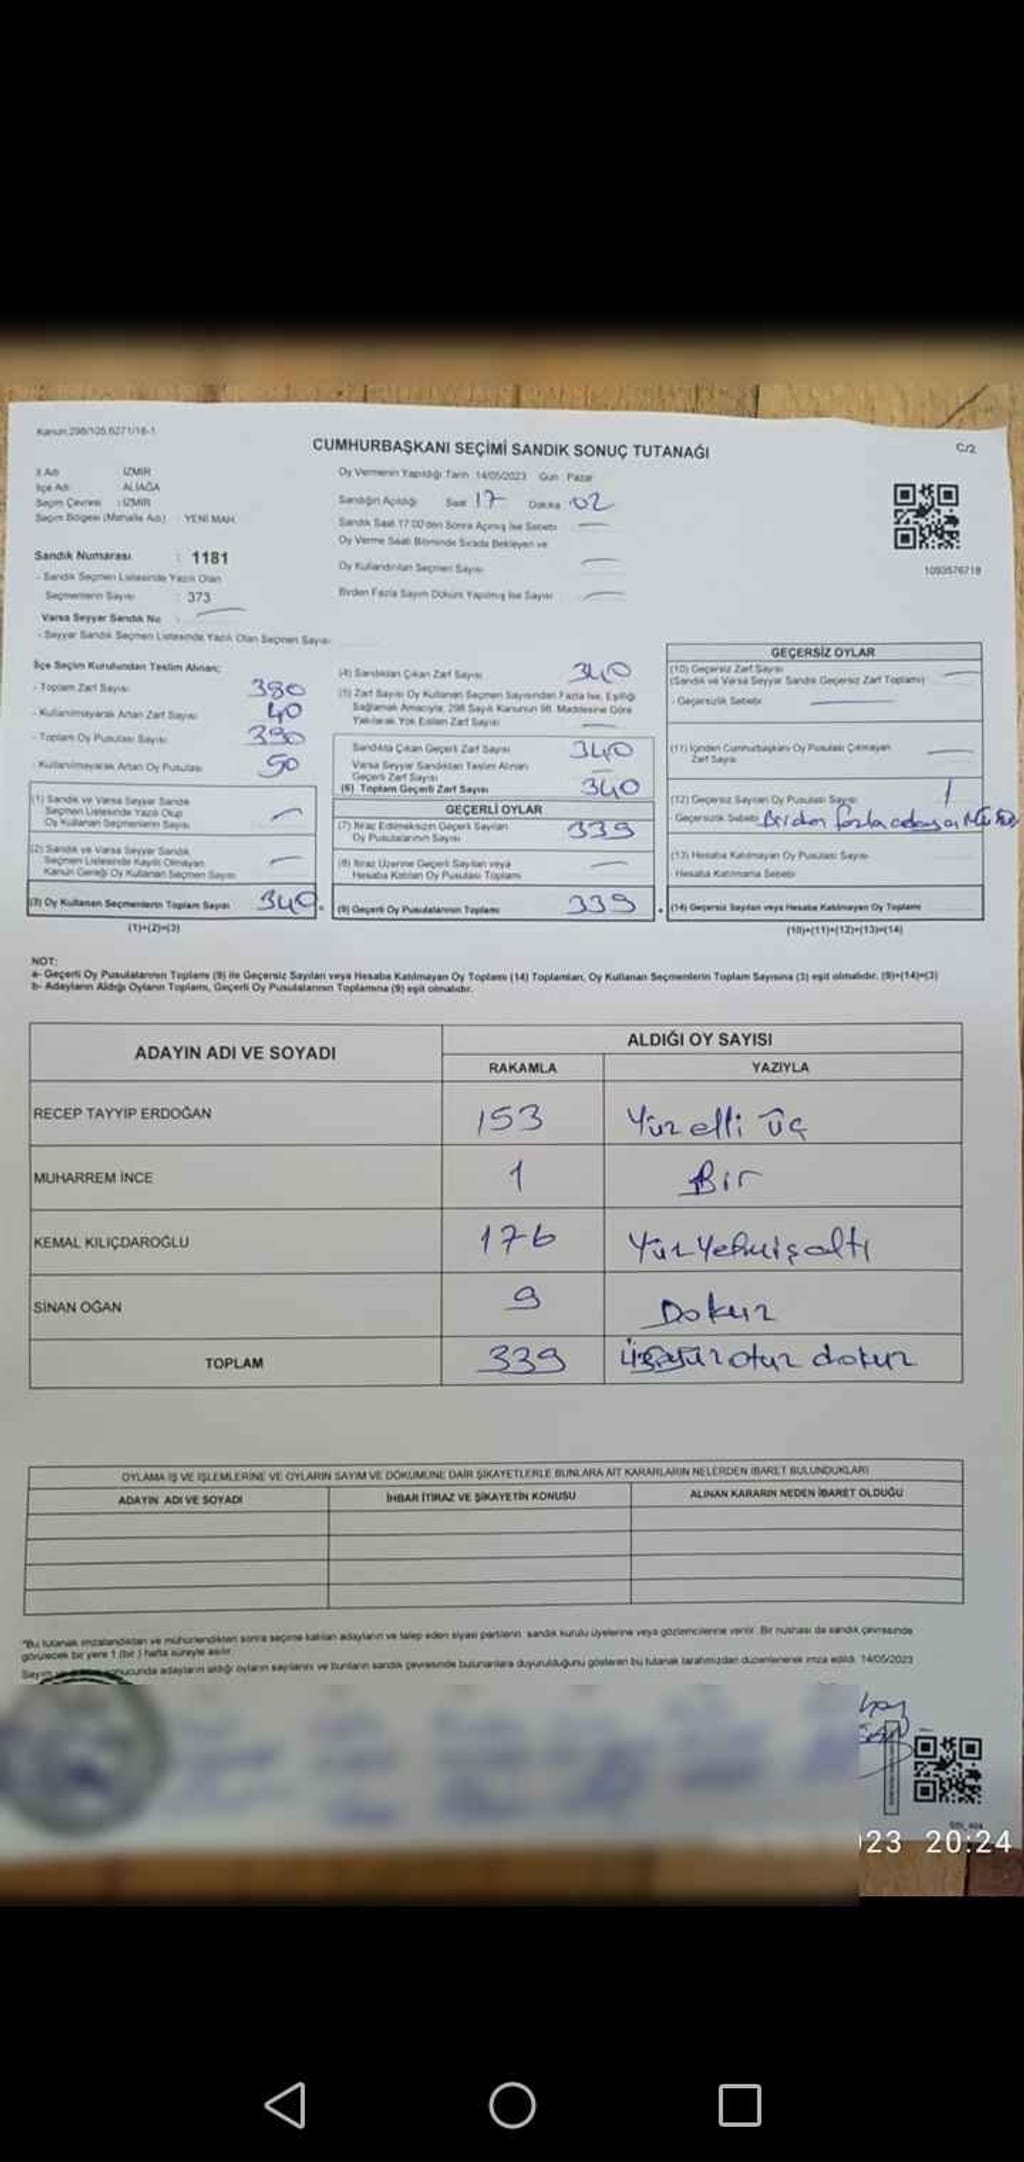 Kanun:298/105.6271/18-1
CUMHURBAŞKANI SEÇİMİ SANDIK SONUÇ TUTANAĞI
C/2
İl Adı : İZMİR
İlçe Adı : ALİAĞA
Seçim Çevresi : İZMİR
Seçim Bölgesi (Mahalle Adı) : YENİ MAH.
Oy Vermenin Yapıldığı Tarih 14/05/2023 Gün : Pazar
Sandığın Açıldığı Saat 17 Dakika 02
Sandık Saat 17.00'den Sonra Açılmış İse Sebebi
Oy Verme Saati Bitiminde Sırada Bekleyen ve
Oy Kullandırılan Seçmen Sayısı
Birden Fazla Sayım Döküm Yapılmış İse Sayısı
1093576718
Sandık Numarası : 1181
- Sandık Seçmen Listesinde Yazılı Olan
Seçmenlerin Sayısı : 373
Varsa Seyyar Sandık No
- Seyyar Sandık Seçmen Listesinde Yazılı Olan Seçmen Sayısı
İlçe Seçim Kurulundan Teslim Alınan;
- Toplam Zarf Sayısı 380
- Kullanılmayarak Artan Zarf Sayısı 40
- Toplam Oy Pusulası Sayısı 390
- Kullanılmayarak Artan Oy Pusulası 50
(1) Sandık ve Varsa Seyyar Sandık
Seçmen Listesinde Yazılı Olup
Oy Kullanan Seçmenlerin Sayısı
(2) Sandık ve Varsa Seyyar Sandık
Seçmen Listesinde Kayıtlı Olmayan
Kanun Gereği Oy Kullanan Seçmen Sayısı
(3) Oy Kullanan Seçmenlerin Toplam Sayısı 340
(1)+(2)=(3)
(4) Sandıktan Çıkan Zarf Sayısı 340
(5) Zarf Sayısı Oy Kullanan Seçmen Sayısından Fazla İse, Eşitliği
Sağlamak Amacıyla, 298 Sayılı Kanunun 98. Maddesine Göre
Yakılarak Yok Edilen Zarf Sayısı
Sandıkta Çıkan Geçerli Zarf Sayısı 340
Varsa Seyyar Sandıktan Teslim Alınan
Geçerli Zarf Sayısı
(6) Toplam Geçerli Zarf Sayısı 340
GEÇERLİ OYLAR
(7) İtiraz Edilmeksizin Geçerli Sayılan
Oy Pusulalarının Sayısı 339
(8) İtiraz Üzerine Geçerli Sayılan veya
Hesaba Katılan Oy Pusulası Toplamı
(9) Geçerli Oy Pusulalarının Toplamı 339
GEÇERSİZ OYLAR
(10) Geçersiz Zarf Sayısı
(Sandık ve Varsa Seyyar Sandık Geçersiz Zarf Toplamı)
- Geçersizlik Sebebi
(11) İçinden Cumhurbaşkanı Oy Pusulası Çıkmayan
Zarf Sayısı
(12) Geçersiz Sayılan Oy Pusulası Sayısı 1
- Geçersizlik Sebebi Birden fazla adaya
(13) Hesaba Katılmayan Oy Pusulası Sayısı
- Hesaba Katılmama Sebebi
(14) Geçersiz Sayılan veya Hesaba Katılmayan Oy Toplamı
(10)+(11)+(12)+(13)=(14)
NOT:
a- Geçerli Oy Pusulalarının Toplamı (9) ile Geçersiz Sayılan veya Hesaba Katılmayan Oy Toplamı (14) Toplamları, Oy Kullanan Seçmenlerin Toplam Sayısına (3) eşit olmalıdır. (9)+(14)=(3)
b- Adayların Aldığı Oyların Toplamı, Geçerli Oy Pusulalarının Toplamına (9) eşit olmalıdır.
ADAYIN ADI VE SOYADI
ALDIĞI OY SAYISI
RAKAMLA YAZIYLA
RECEP TAYYİP ERDOĞAN 153 Yüz elli üç
MUHARREM İNCE 1 Bir
KEMAL KILIÇDAROĞLU 176 Yüz Yetmiş altı
SİNAN OĞAN 9 Dokuz
TOPLAM 339 Üçyüz otuz dokuz
OYLAMA İŞ VE İŞLEMLERİNE VE OYLARIN SAYIM VE DÖKÜMÜNE DAİR ŞİKAYETLERLE BUNLARA AİT KARARLARIN NELERDEN İBARET BULUNDUKLARI
ADAYIN ADI VE SOYADI İHBAR İTİRAZ VE ŞİKAYETİN KONUSU ALINAN KARARIN NEDEN İBARET OLDUĞU
"Bu tutanak imzalandıktan ve mühürlendikten sonra seçime katılan adayların ve talep eden siyasi partilerin, sandık kurulu üyelerine veya gözlemcilerine verilir. Bir nüshası da sandık çevresinde
görülecek bir yere 1 (bir) hafta süreyle asılır.
sonucunda adayların aldığı oyların sayılarını ve bunların sandık çevresinde bulunanlara duyurulduğunu gösteren bu tutanak tarafımızdan düzenlenerek imza edildi. 14/05/2023
23 20:24